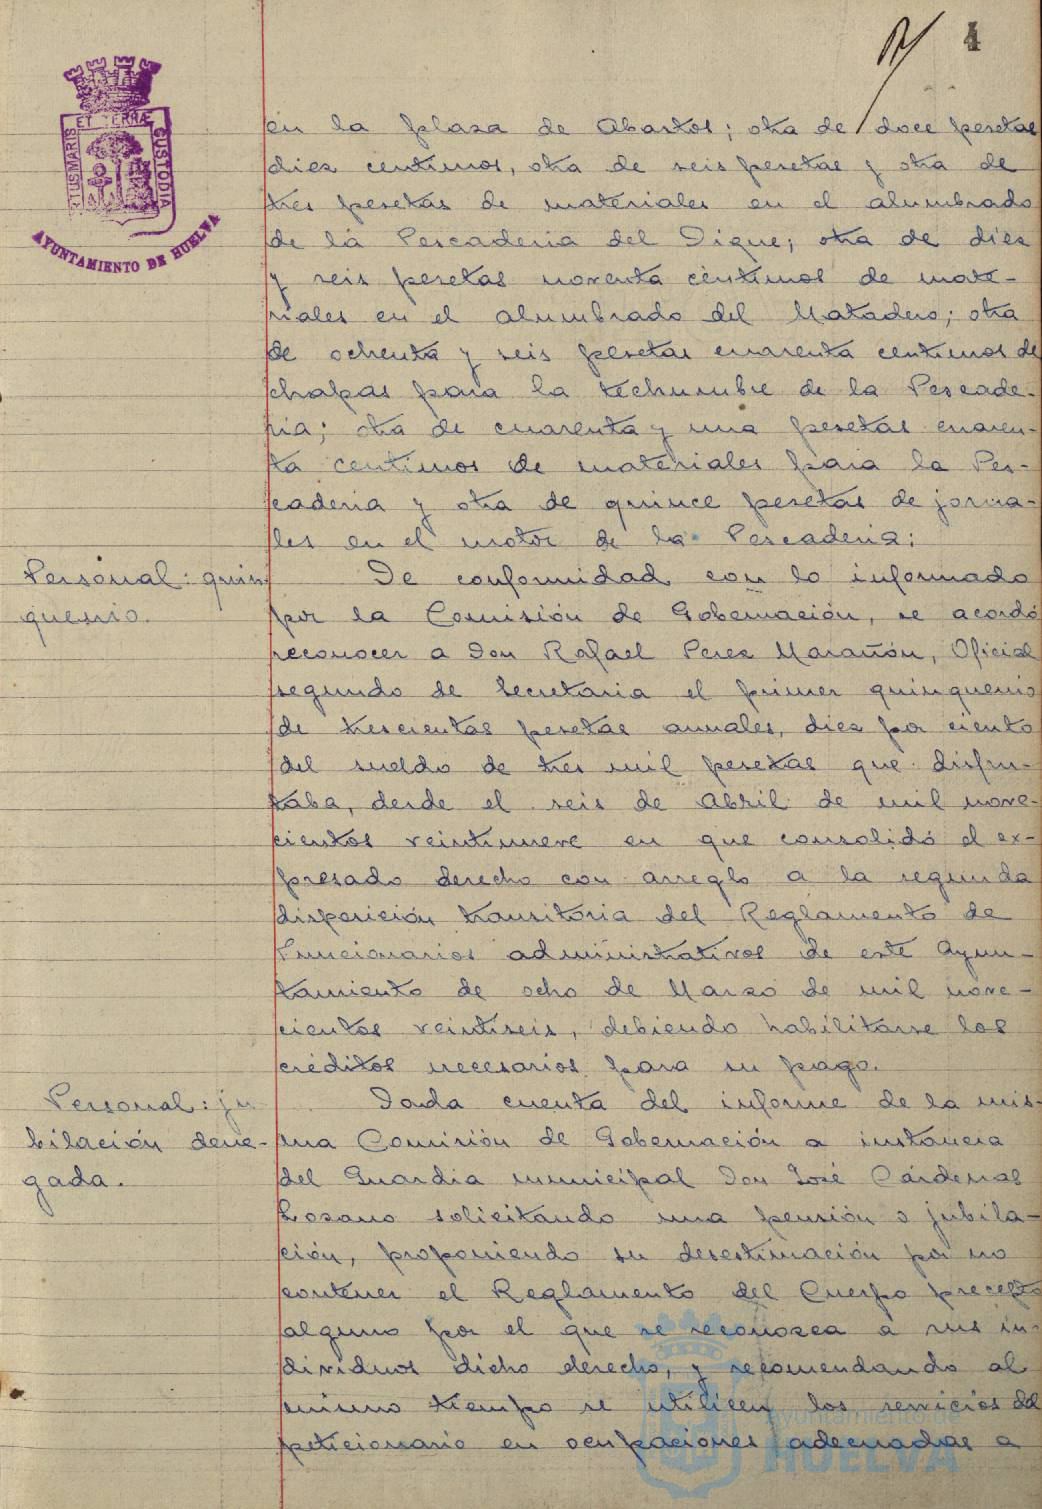 4
ET TERRÆ
PORTUS MARIS
CUSTODIA
AYUNTAMIENTO DE HUELVA
en la plaza de Abastos; otra de doce pesetas
diez centimos, otra de seis pesetas y otra de
tres pesetas de materiales en el alumbrado
de la Pescaderia del Dique; otra de diez
y seis pesetas noventa céntimos de mate-
riales en el alumbrado del Matadero; otra
de ochenta y seis pesetas cuarenta centimos de
chapas para la techumbre de la Pescade-
ria; otra de cuarenta y una pesetas cuaren-
ta centimos de materiales para la Pes-
caderia y otra de quince pesetas de jorna-
les en el motor de la Pescaderia;
Personal: quin
quenio.
De conformidad con lo informado
por la Comisión de Gobernación, se acordó
reconocer a Don Rafael Perez Marañón, Oficial
segundo de Secretaria el primer quinquenio
de trescientas pesetas anuales, diez por ciento
del sueldo de tres mil pesetas que disfru-
taba, desde el seis de Abril de mil nove-
cientos veintinueve en que consolidó el ex-
presado derecho con arreglo a la segunda
disposición transitoria del Reglamento de
Funcionarios administrativos de este Ayun-
tamiento de ocho de Marzo de mil nove-
cientos veintiseis, debiendo habilitarse los
créditos necesarios para su pago.
Personal: ju
bilación dene-
gada.
Dada cuenta del informe de la mis-
ma Comisión de Gobernación a instancia
del Guardia municipal Don José Cárdenas
Lozano solicitando una pensión o jubila-
ción, proponiendo su desestimación por no
contener el Reglamento del Cuerpo precepto
alguno por el que se reconozca a sus in-
dividuos dicho derecho, y recomendando al
mismo tiempo se utilicen los servicios del
peticionario en ocupaciones adecuadas a
Ayuntamiento de
HUELVA